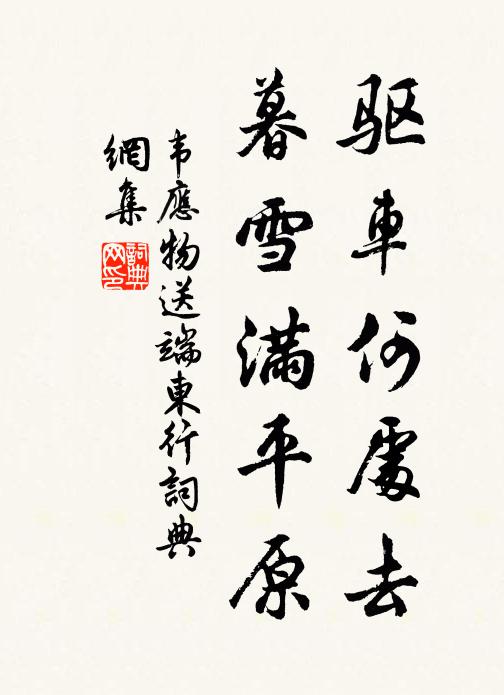 驱車何處去
暮雪滿平原
韦應物送端東行詞典
網集
詞典
网印